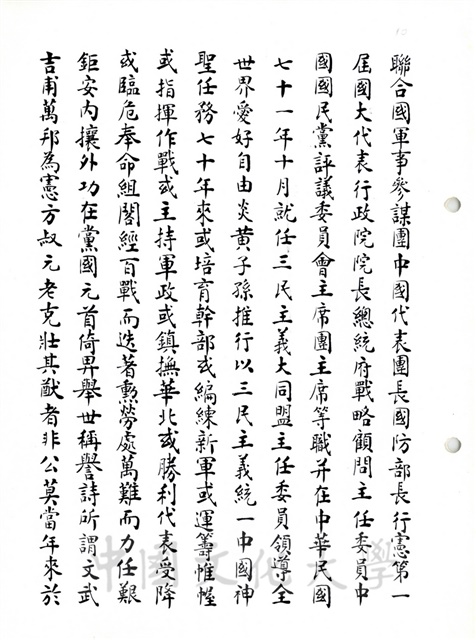 聯合國軍事參謀團中國代表團長國防部長行憲第一
屆國大代表行政院院長總統府戰略顧問主任委員中
國國民黨評議委員會主席團主席等職并在中華民國
七十一年十月就任三民主義大同盟主任委員領導全
世界愛好自由炎黃子孫推行以三民主義統一中國神
聖任務七十年來或培育幹部或編練新軍或運籌帷幄
或指揮作戰或主持軍政或鎮撫華北或勝利代表受降
或臨危奉命組閣經百戰而迭著勲勞處萬難而力任艱
鉅安內攘外功在黨國元首倚畀舉世稱譽詩所謂文武
吉甫萬邦為憲方叔元老克壯其猷者非公莫當年來於
中國文化大學